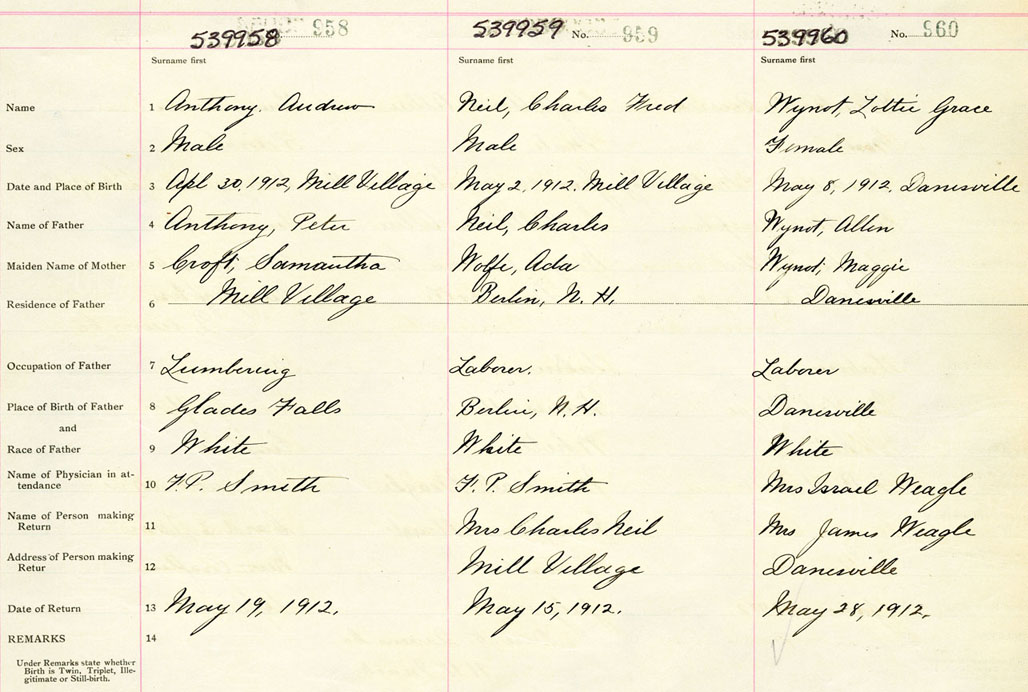 539958 958 539959 No. 959 539960 No. 960
Surname first Surname first Surname first
Name 1 Anthony, Andrew Neil, Charles Fred Wynot, Lottie Grace
Sex 2 Male Male Female
Date and Place of Birth 3 Apl 30, 1912, Mill Village May 2, 1912, Mill Village May 8, 1912, Danesville
Name of Father 4 Anthony, Peter Neil, Charles Wynot, Allen
Maiden Name of Mother 5 Croft, Samantha Wolfe, Ada Wynot, Maggie
Residence of Father 6 Mill Village Berlin, N. H. Danesville
Occupation of Father 7 Lumbering Laborer. Laborer
Place of Birth of Father 8 Glades Falls Berlin, N. H. Danesville
and
Race of Father 9 White White White
Name of Physician in at-
tendance 10 F. P. Smith F. P. Smith Mrs Israel Weagle
Name of Person making
Return 11 Mrs Charles Neil Mrs James Weagle
Address of Person making
Retur 12 Mill Village Danesville
Date of Return 13 May 19, 1912. May 15, 1912. May 28, 1912.
REMARKS 14
Under Remarks state whether
Birth is Twin, Triplet, Ille-
gitimate or Still-birth.